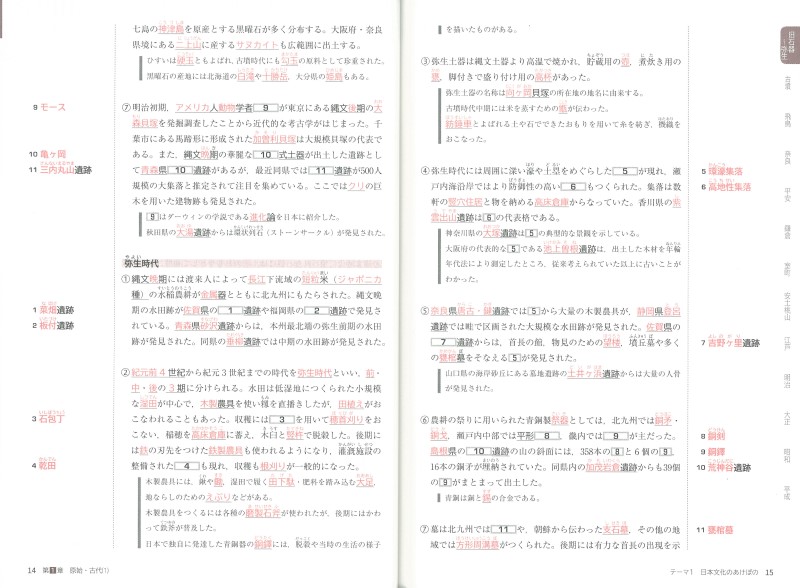 七島の神津島を原産とする黒曜石が多く分布する。大阪府・奈良
県境にある二上山に産するサヌカイトも広範囲に出土する。
ひすいは硬玉ともよばれ、古墳時代にも勾玉の原料として珍重された。
黒曜石の産地には北海道の白滝や十勝岳、大分県の姫島もある。
9 モース
⑦明治初期、アメリカ人動物学者 9 が東京にある縄文後期の大
森貝塚を発掘調査したことから近代的な考古学がはじまった。千
葉市にある馬蹄形に形成された加曽利貝塚は大規模貝塚の代表で
10 亀ヶ岡
ある。また、縄文晩期の華麗な 10 式土器が出土した遺跡とし
11 三内丸山遺跡
て青森県 10 遺跡があるが、最近同県では 11 遺跡が500人
規模の大集落と推定されて注目を集めている。ここではクリの巨
木を用いた建物跡も発見された。
9 はダーウィンの学説である進化論を日本に紹介した。
秋田県の大湯遺跡からは環状列石(ストーンサークル)が発見された。
弥生時代
①縄文晩期には渡来人によって長江下流域の短粒米(ジャポニカ
種)の水稲農耕が金属器とともに北九州にもたらされた。縄文晩
1 菜畑遺跡
期の水田跡が佐賀県の 1 遺跡や福岡県の 2 遺跡で発見さ
2 板付遺跡
れている。青森県砂沢遺跡からは、本州最北端の弥生前期の水田
跡が発見された。同県の垂柳遺跡では中期の水田跡が発見された。
②紀元前4世紀から紀元3世紀までの時代を弥生時代といい、前・
中・後の3期に分けられる。水田は低湿地につくられた小規模
な湿田が中心で、木製農具を使い籾を直播きしたが、田植えがお
3 石包丁
こなわれることもあった。収穫には 3 を用いて穂首刈りをお
こない、稲穂を高床倉庫に蓄え、木臼と竪杵で脱穀した。後期に
は鉄の刃先をつけた鉄製農具も使われるようになり、灌漑施設の
4 乾田
整備された 4 も現れ、収穫も根刈りが一般的になった。
木製農具には、鍬や鋤、湿田で履く田下駄・肥料を踏み込む大足、
地ならしのためのえぶりなどがある。
木製農具をつくるには各種の磨製石斧が使われたが、後期にはかわ
って鉄斧が普及した。
日本で独自に発達した青銅器の銅鐸には、脱穀や当時の生活の様子
14 第1章 原始・古代(1)
を描いたものがある。
③弥生土器は縄文土器より高温で焼かれ、貯蔵用の壺、煮炊き用の
甕、脚付きで盛り付け用の高杯があった。
弥生土器の名称は向ヶ岡貝塚の所在地の地名に由来する。
古墳時代中期には米を蒸すための甑が伝わった。
紡錘車とよばれる土や石でできたおもりを用いて糸を紡ぎ、機織を
おこなった。
④弥生時代には周囲に深い濠や土塁をめぐらした 5 が現れ、瀬
5 環濠集落
戸内海沿岸ではより防御性の高い 6 もつくられた。集落は数
6 高地性集落
軒の竪穴住居と物を納める高床倉庫からなっていた。香川県の紫
雲出山遺跡は 6 の代表格である。
神奈川県の大塚遺跡は 5 の典型的な景観を示している。
大阪府の代表的な 5 である池上曽根遺跡は、出土した木材を年輪
年代法により測定したところ、従来考えられていた以上に古いことが
わかった。
⑤奈良県唐古・鍵遺跡では 5 から大量の木製農具が、静岡県登呂
遺跡では畦で区画された大規模な水田跡が発見された。佐賀県の
7 吉野ヶ里遺跡
7 遺跡からは、首長の館、物見のための望楼、墳丘墓や多く
の甕棺墓をそなえる 5 が発見された。
山口県の海岸砂丘にある墓地遺跡の土井ヶ浜遺跡からは大量の人骨
が発見された。
⑥農耕の祭りに用いられた青銅製祭器としては、北九州では銅矛・
8 銅剣
銅戈、瀬戸内中部では平形 8 、畿内では 9 が主だった。
9 銅鐸
島根県の 10 遺跡の山の斜面には、358本の 8 と6個の 9 、
10 荒神谷遺跡
16本の銅矛が埋納されていた。同県内の加茂岩倉遺跡からも39個
の 9 がまとまって出土した。
青銅は銅と錫の合金である。
11 甕棺墓
⑦墓は北九州では 11 や、朝鮮から伝わった支石墓、その他の地
域では方形周溝墓がつくられた。後期には有力な首長の出現を示
テーマ1 日本文化のあけぼの 15
旧石器〜弥生
古墳
飛鳥
奈良
平安
鎌倉
室町
安土桃山
江戸
明治
大正
昭和
平成